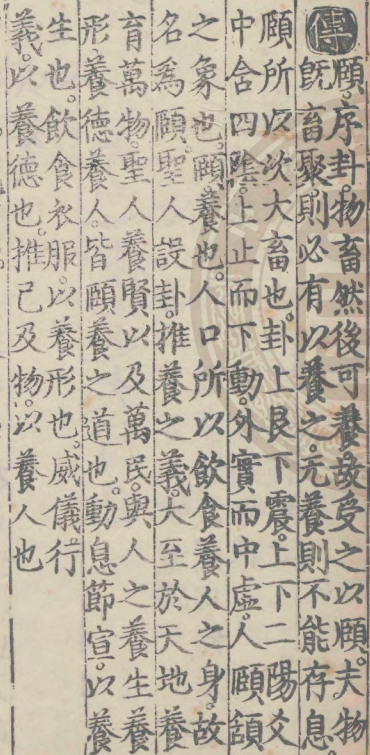 傳
頤。序卦。物畜然後可養。故受之以頤。夫物
旣畜聚。則必有以養之。无養則不能存息。
頤所以次大畜也。卦上艮下震。上下二陽爻
中含四隂。上止而下動。外實而中虛。人頤頷
之象也。頤養也。人口所以飲食養人之身。故
名爲頤。聖人設卦。推養之義。大至於天地養
育萬物。聖人養賢以及萬民。與人之養生養
形。養德養人。皆頤養之道也。動息節宣。以養
生也。飲食衣服。以養形也。威儀行
義。以養德也。推己及物。以養人也